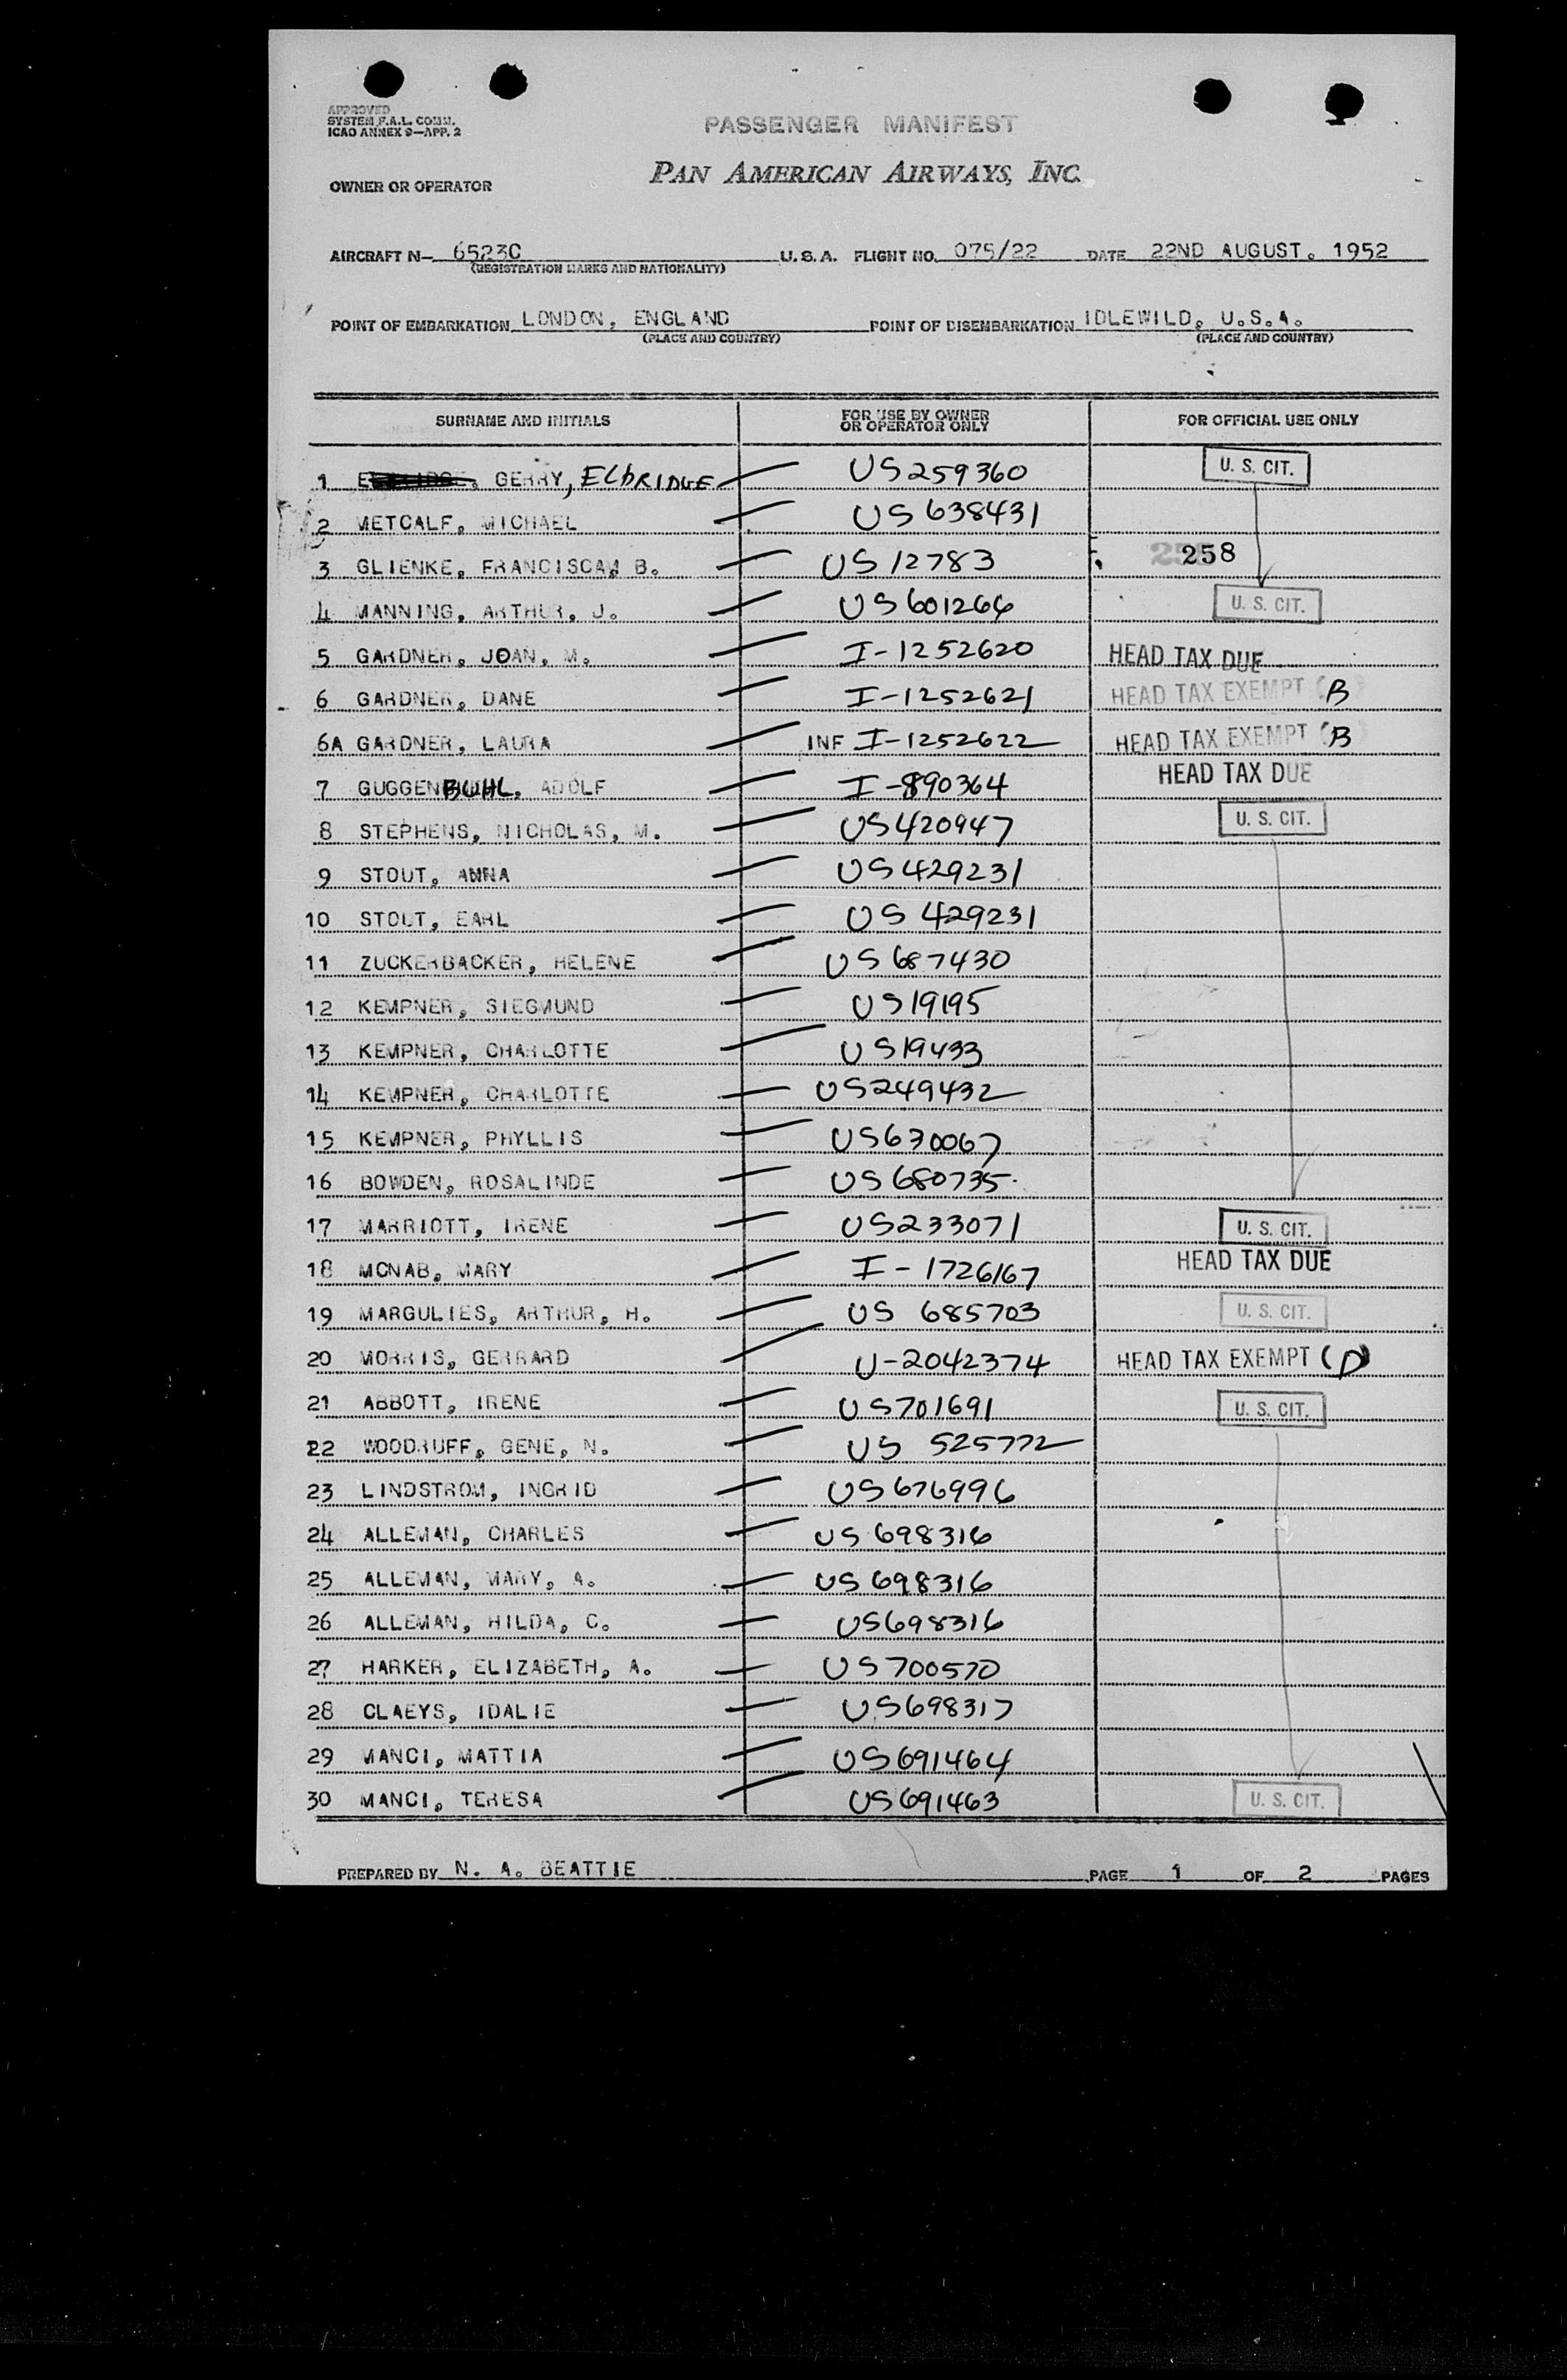 APPROVED
SYSTEM F.A.L. COMM.
ICAO ANNEX 9—APP. 2
PASSENGER MANIFEST
OWNER OR OPERATOR PAN AMERICAN AIRWAYS, INC.
AIRCRAFT N— 6523C U. S. A. FLIGHT NO. 075/22 DATE 22ND AUGUST. 1952
(REGISTRATION MARKS AND NATIONALITY)
POINT OF EMBARKATION LONDON, ENGLAND POINT OF DISEMBARKATION IDLEWILD, U.S.A.
(PLACE AND COUNTRY) (PLACE AND COUNTRY)
SURNAME AND INITIALS FOR USE BY OWNER OR OPERATOR ONLY FOR OFFICIAL USE ONLY
1 GERRY, ELBRIDGE US259360 U. S. CIT.
2 METCALF, MICHAEL US638431
3 GLIENKE, FRANCISCA, B. US12783 258
4 MANNING, ARTHUR, J. US601264 U. S. CIT.
5 GARDNER, JOAN, M. I-1252620 HEAD TAX DUE
6 GARDNER, DANE I-1252621 HEAD TAX EXEMPT (B)
6A GARDNER, LAURA INF I-1252622 HEAD TAX EXEMPT (B)
7 GUGGENBUHL, ADOLF I-890364 HEAD TAX DUE
8 STEPHENS, NICHOLAS, M. US420947 U. S. CIT.
9 STOUT, ANNA US429231
10 STOUT, EARL US 429231
11 ZUCKERBACKER, HELENE US687430
12 KEMPNER, SIEGMUND US19195
13 KEMPNER, CHARLOTTE US19433
14 KEMPNER, CHARLOTTE US249432
15 KEMPNER, PHYLLIS US630067
16 BOWDEN, ROSALINDE US680735
17 MARRIOTT, IRENE US233071 U. S. CIT.
18 MCNAB, MARY I-1726167 HEAD TAX DUE
19 MARGULIES, ARTHUR, H. US 685703 U. S. CIT.
20 MORRIS, GERRARD U-2042374 HEAD TAX EXEMPT (D)
21 ABBOTT, IRENE US701691 U. S. CIT.
22 WOODRUFF, GENE, N. US 525772
23 LINDSTROM, INGRID US676996
24 ALLEMAN, CHARLES US698316
25 ALLEMAN, MARY, A. US698316
26 ALLEMAN, HILDA, C. US698316
27 HARKER, ELIZABETH, A. US700570
28 CLAEYS, IDALIE US698317
29 MANCI, MATTIA US691464
30 MANCI, TERESA US691463 U. S. CIT.
PREPARED BY N. A. BEATTIE PAGE 1 OF 2 PAGES